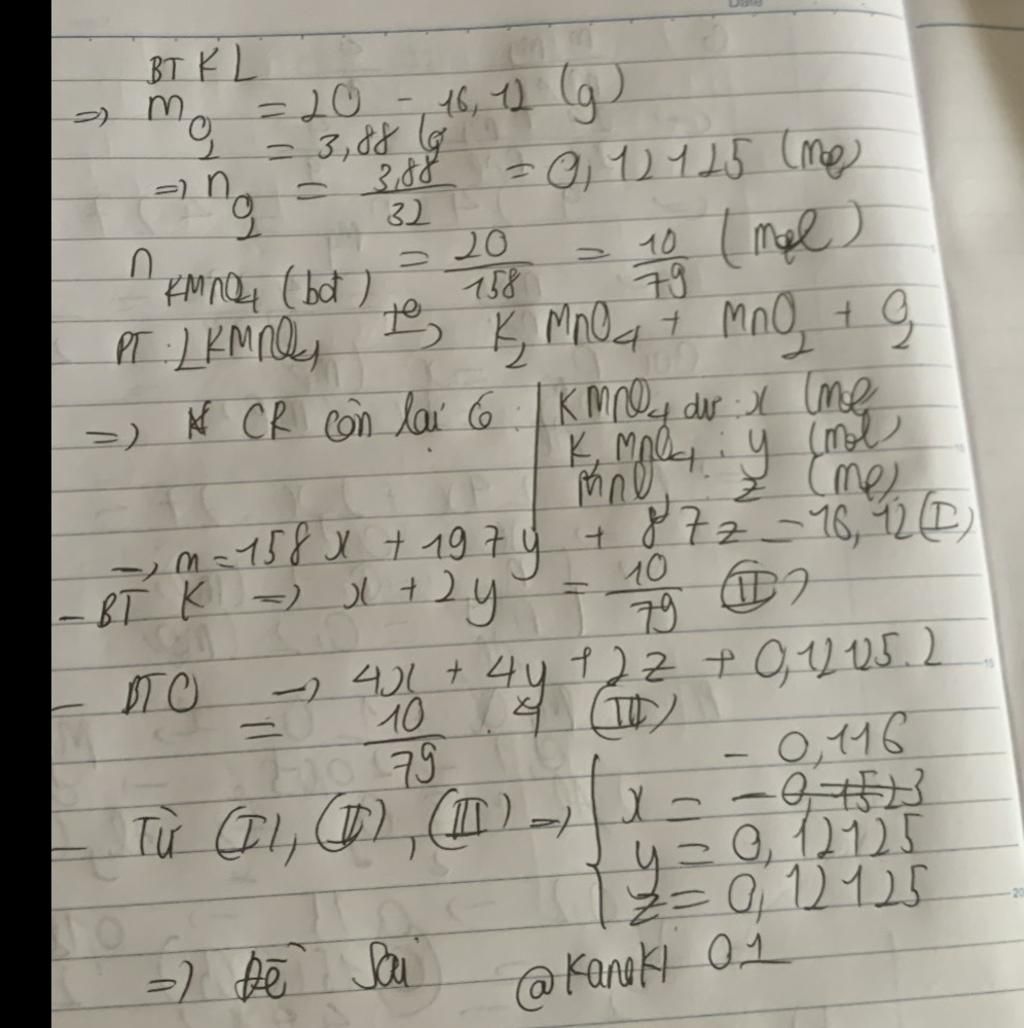 Date
BT KL
=> m O2 = 20 - 16,12 (g)
= 3,88 (g
=> n O2 = 3,88/32 = 0,12125 (mol)
n KMnO4 (bđ) = 20/158 = 10/79 (mol)
PT: 2KMnO4 to→ K2MnO4 + MnO2 + O2
=> CR còn lại có: KMnO4 dư: x (mol
K2MnO4: y (mol)
MnO2: z (mol)
→ m = 158x + 197y + 87z = 16,12 (I)
- BT K => x + 2y = 10/79 (II)
- BTO → 4x + 4y + 2z + 0,12125.2
= 10/79 . 4 (III)
- 0,116
- Từ (I), (II), (III) => x = -0,1523
y = 0,12125
z = 0,12125
=> Đề sai @Kanoki 01